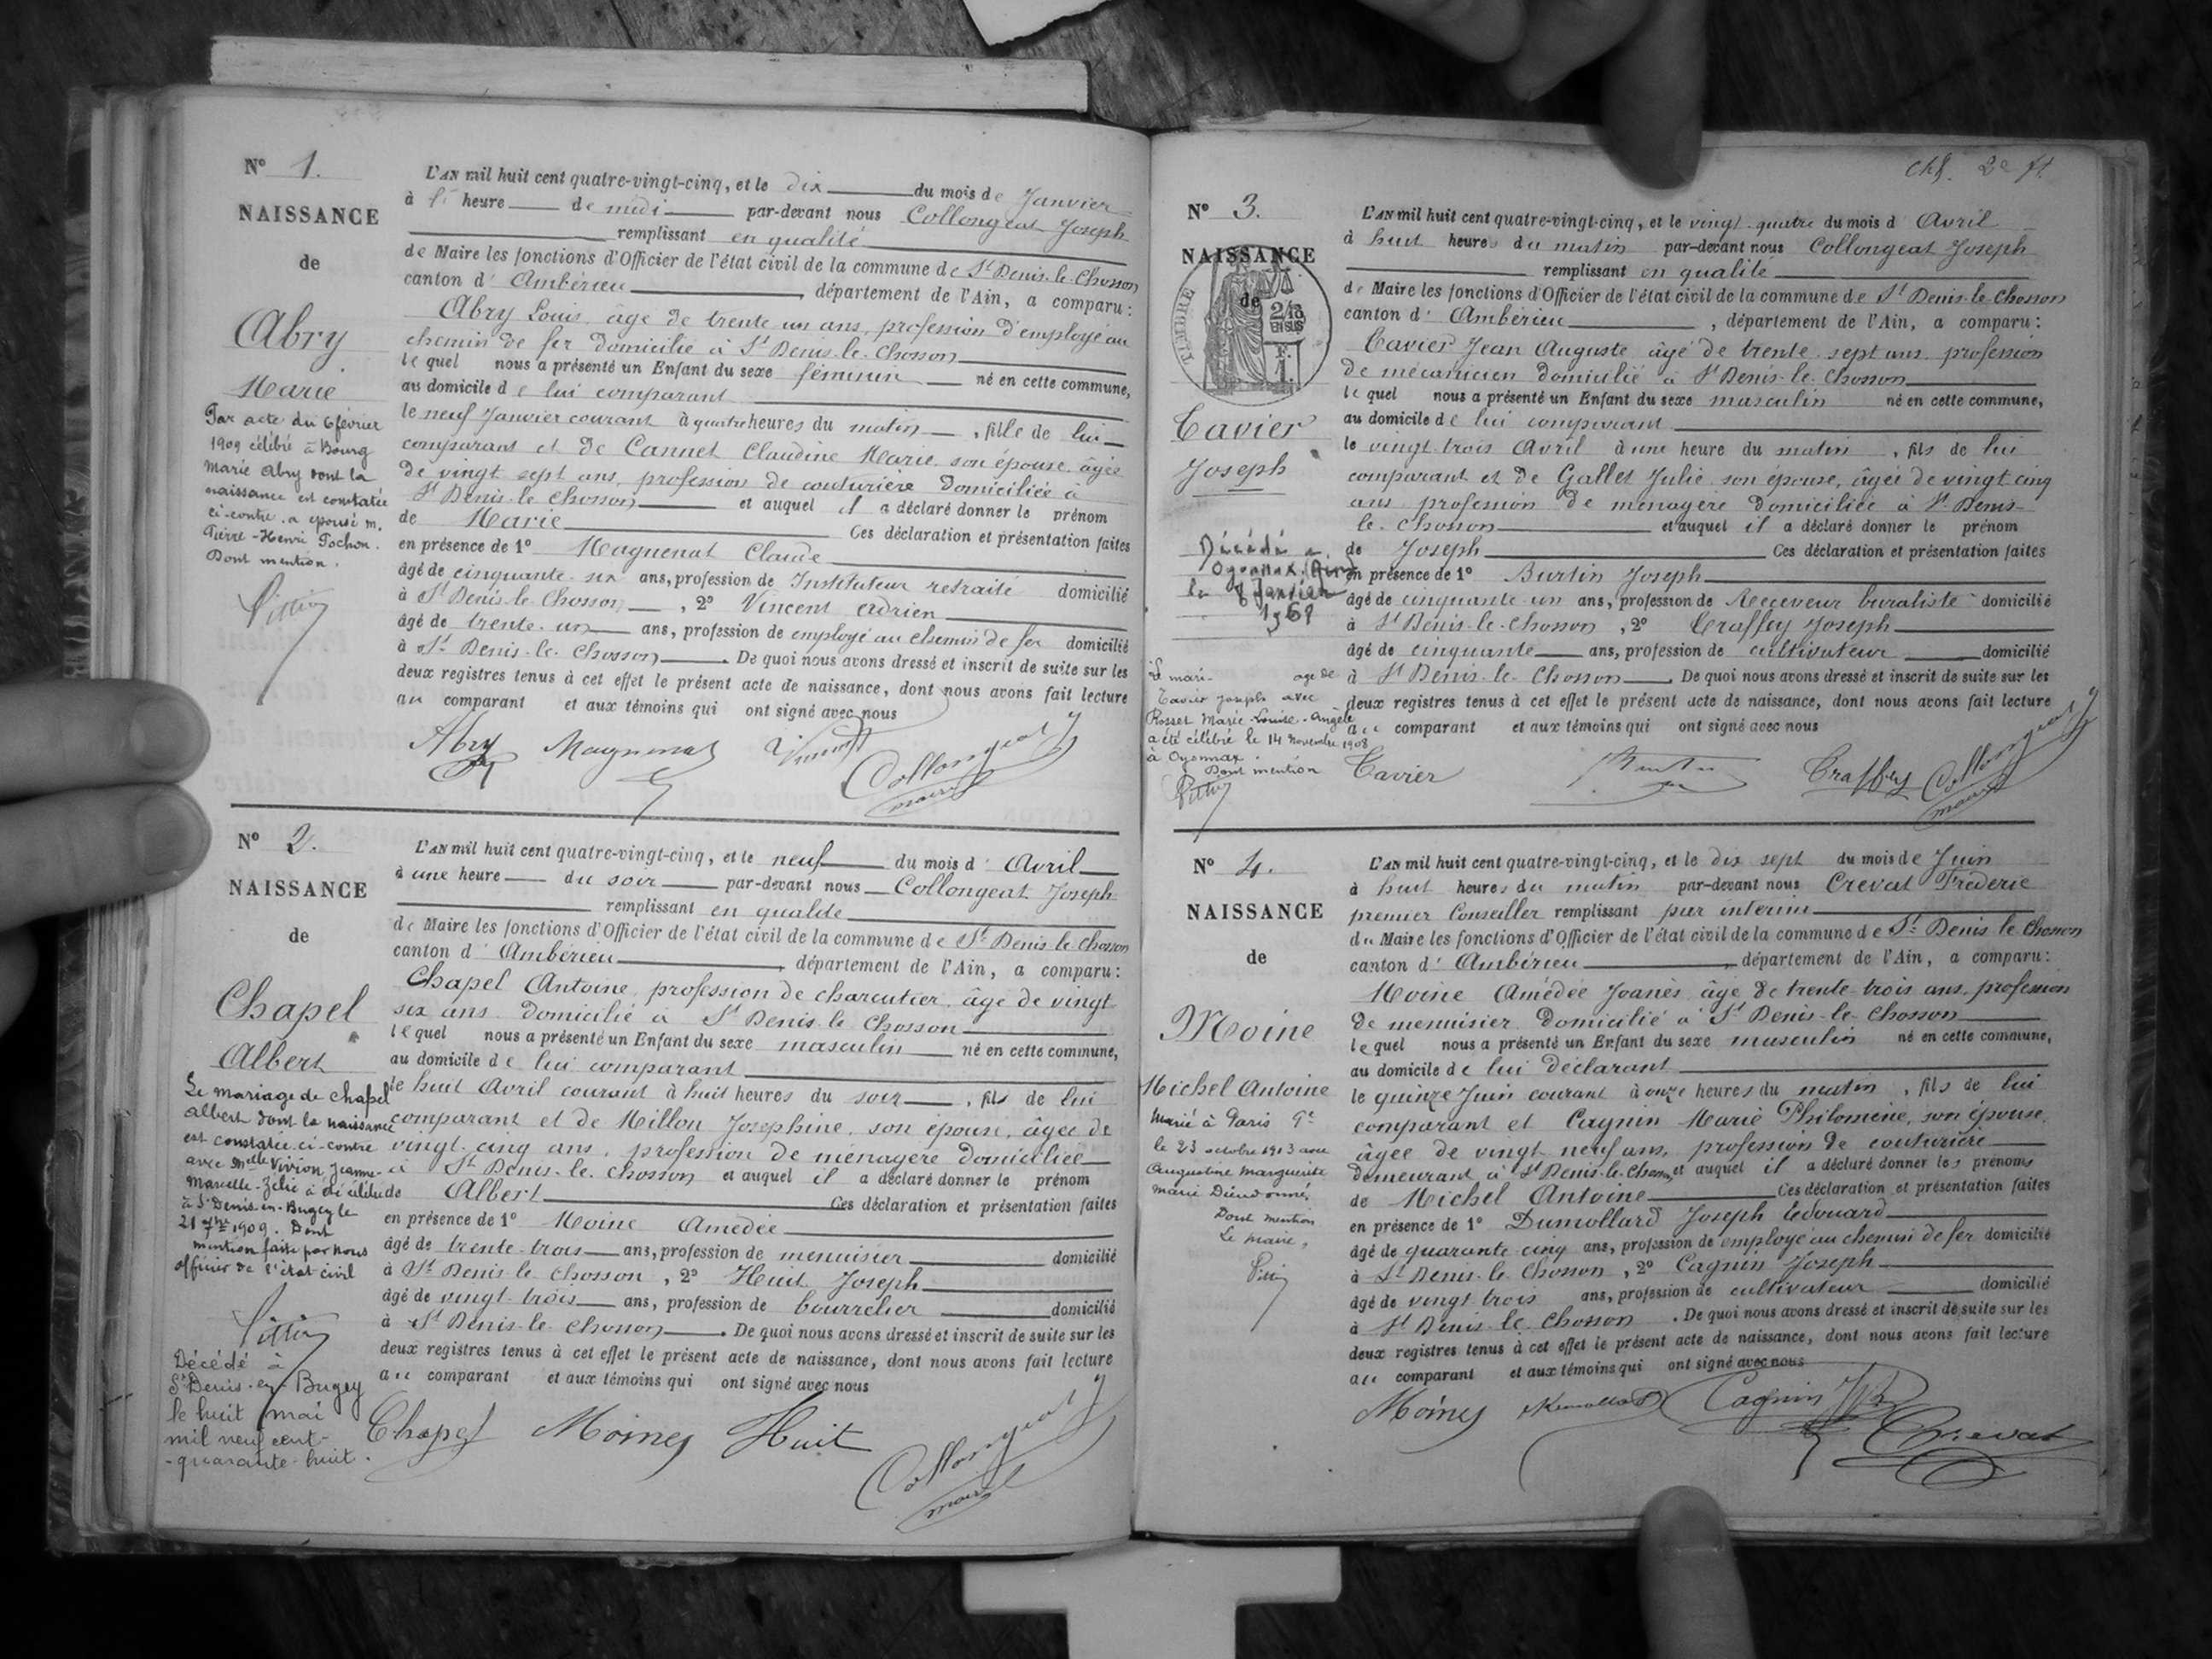 N° 1.
NAISSANCE
de
Abry
Marie
Par acte du 6 février
1909 célébré à Bourg
Marie Abry dont la
naissance est constatée
ci-contre a épousé m.
Pierre-Henri Pochon.
Dont mention.
L'AN mil huit cent quatre-vingt-cinq, et le dix du mois de Janvier
à heure de midi par-devant nous Collongeat Joseph
remplissant en qualité
de Maire les fonctions d'Officier de l'état civil de la commune de St Denis-le-Chosson
canton d' Ambérieu, département de l'Ain, a comparu:
Abry Louis, âgé de trente un ans, profession d'employé au
chemin de fer domicilié à St Denis-le-Chosson
lequel nous a présenté un Enfant du sexe féminin né en cette commune,
au domicile de lui comparant
le neuf Janvier courant à quatre heures du matin, fille de lui
comparant et de Cannet Claudine Marie son épouse âgée
de vingt sept ans, profession de couturière domiciliée à
St Denis-le-Chosson et auquel il a déclaré donner le prénom
de Marie Ces déclaration et présentation faites
en présence de 1° Magnenat Claude
âgé de cinquante-six ans, profession de Instituteur retraité domicilié
à St Denis-le-Chosson, 2° Vincent Adrien
âgé de trente-un ans, profession de employé au chemin de fer domicilié
à St Denis-le-Chosson. De quoi nous avons dressé et inscrit de suite sur les
deux registres tenus à cet effet le présent acte de naissance, dont nous avons fait lecture
au comparant et aux témoins qui ont signé avec nous
Abry Magnenat Vincent Collongeat
maire
N° 2.
NAISSANCE
de
Chapel
Albert
Le mariage de Chapel
Albert dont la naissance
est constatée ci-contre
avec Melle Vivion Jeanne-
Marcelle-Zélie a été célébré
à St Denis-en-Bugey le
21 7bre 1909. Dont
mention faite par nous
officier de l'état-civil
Décédé à
St Denis-en-Bugey
le huit mai
mil neuf cent-
-quarante-huit.
L'AN mil huit cent quatre-vingt-cinq, et le neuf du mois d' Avril
à une heure du soir par-devant nous Collongeat Joseph
remplissant en qualité
de Maire les fonctions d'Officier de l'état civil de la commune de St Denis-le-Chosson
canton d' Ambérieu, département de l'Ain, a comparu:
Chapel Antoine profession de charcutier, âgé de vingt
six ans domicilié à St Denis-le-Chosson
lequel nous a présenté un Enfant du sexe masculin né en cette commune,
au domicile de lui comparant
le huit Avril courant à huit heures du soir, fils de lui
comparant et de Millon Josephine, son épouse, âgée de
vingt-cinq ans, profession de ménagère domiciliée
à St Denis-le-Chosson et auquel il a déclaré donner le prénom
de Albert Ces déclaration et présentation faites
en présence de 1° Moine Amédée
âgé de trente-trois ans, profession de menuisier domicilié
à St Denis-le-Chosson, 2° Huit Joseph
âgé de vingt-trois ans, profession de bourrelier domicilié
à St Denis-le-Chosson. De quoi nous avons dressé et inscrit de suite sur les
deux registres tenus à cet effet le présent acte de naissance, dont nous avons fait lecture
au comparant et aux témoins qui ont signé avec nous
Chapel Moine Huit Collongeat
maire
N° 3.
NAISSANCE
de
TIMBRE
2/10
EN SUS
F.
1.
Tavier
Joseph
Décédé à
Oyonnax (Ain)
le 8 Janvier
1961
Tavier Joseph avec
Rosset Marie-Louise-Angèle
a été célébré le 14 novembre 1908
à Oyonnax
Dont mention
L'AN mil huit cent quatre-vingt-cinq, et le vingt-quatre du mois d' Avril
à huit heures du matin par-devant nous Collongeat Joseph
remplissant en qualité
de Maire les fonctions d'Officier de l'état civil de la commune de St Denis-le-Chosson
canton d' Ambérieu, département de l'Ain, a comparu:
Tavier Jean Auguste âgé de trente-sept ans profession
de mécanicien domicilié à St Denis-le-Chosson
lequel nous a présenté un Enfant du sexe masculin né en cette commune,
au domicile de lui comparant
le vingt-trois Avril à une heure du matin, fils de lui
comparant et de Gallet Julie son épouse, âgée de vingt cinq
ans profession de ménagère domiciliée à St Denis-
le-Chosson et auquel il a déclaré donner le prénom
de Joseph Ces déclaration et présentation faites
en présence de 1° Burtin Joseph
âgé de cinquante-un ans, profession de Receveur buraliste domicilié
à St Denis-le-Chosson, 2° Traffey Joseph
âgé de cinquante ans, profession de cultivateur domicilié
à St Denis-le-Chosson. De quoi nous avons dressé et inscrit de suite sur les
deux registres tenus à cet effet le présent acte de naissance, dont nous avons fait lecture
au comparant et aux témoins qui ont signé avec nous
Tavier Burtin Traffey Collongeat
maire
N° 4.
NAISSANCE
de
Moine
Michel Antoine
Marié à Paris 9e
le 23 octobre 1913 avec
Augustine Marguerite
Marie Dieudonné.
Dont mention
Le maire,
L'AN mil huit cent quatre-vingt-cinq, et le dix sept du mois de Juin
à huit heures du matin par-devant nous Crevat Frédéric
premier Conseiller remplissant par intérim
du Maire les fonctions d'Officier de l'état civil de la commune de St Denis-le-Chosson
canton d' Ambérieu, département de l'Ain, a comparu:
Moine Amédée Joanès âgé de trente-trois ans, profession
de menuisier domicilié à St Denis-le-Chosson
lequel nous a présenté un Enfant du sexe masculin né en cette commune,
au domicile de lui déclarant
le quinze Juin courant à onze heures du matin, fils de lui
comparant et Cagnin Marie Philomène, son épouse,
âgée de vingt neuf ans, profession de couturière
demeurant à St Denis-le-Chosson, et auquel il a déclaré donner les prénoms
de Michel Antoine Ces déclaration et présentation faites
en présence de 1° Dumollard Joseph Edouard
âgé de quarante-cinq ans, profession de employé au chemin de fer domicilié
à St Denis-le-Chosson, 2° Cagnin Joseph
âgé de vingt-trois ans, profession de cultivateur domicilié
à St Denis-le-Chosson. De quoi nous avons dressé et inscrit de suite sur les
deux registres tenus à cet effet le présent acte de naissance, dont nous avons fait lecture
au comparant et aux témoins qui ont signé avec nous
Moine Dumollard Cagnin Crevat